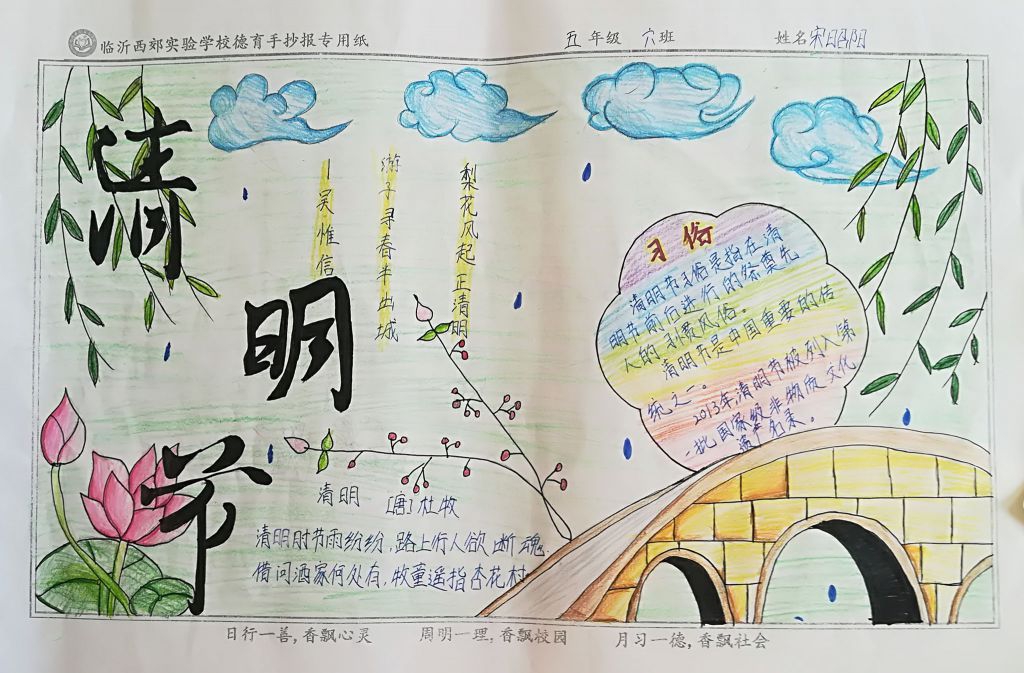 临沂西郊实验学校德育手抄报专用纸
五年级 六班
姓名宋昭阳
清
明
节
梨花风起正清明
游子寻春半出城
吴惟信
习俗
清明节习俗是指在清
明节前后进行的祭奠先
人的习惯风俗。
清明节是中国重要的传
统之一。
2013年清明节被列入第
一批国家级非物质文化
遗产名录。
清明 [唐]杜牧
清明时节雨纷纷,路上行人欲断魂.
借问酒家何处有,牧童遥指杏花村
日行一善,香飘心灵
周明一理,香飘校园
月习一德,香飘社会